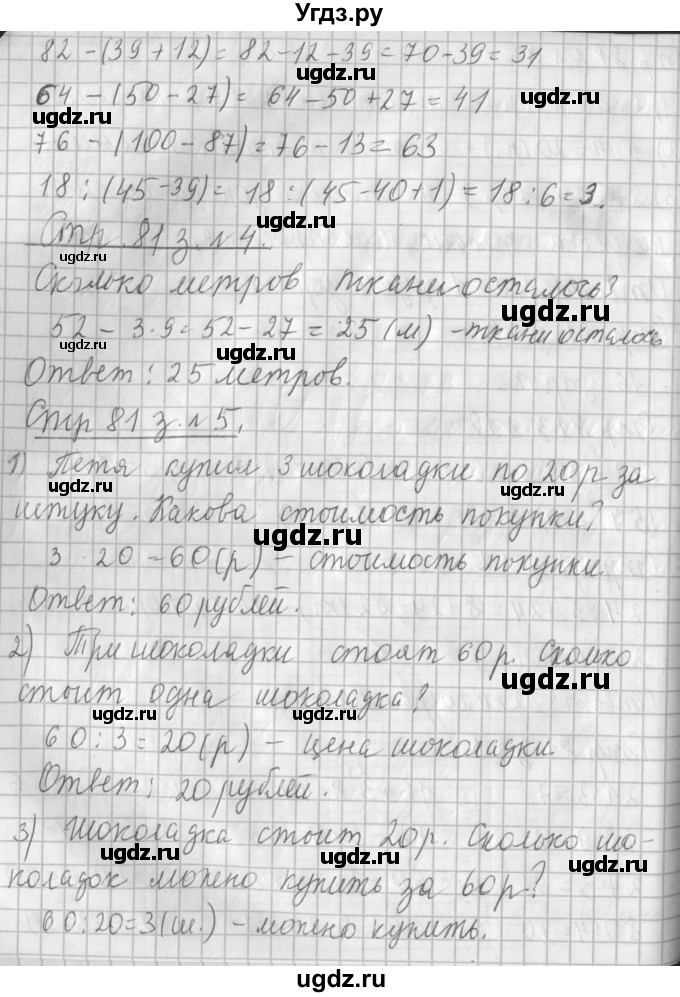 Угдз.ру
82 - (39 + 12) = 82 - 12 - 39 = 70 - 39 = 31
64 - (50 - 27) = 64 - 50 + 27 = 41
76 - (100 - 87) = 76 - 13 = 63
18 : (45 - 39) = 18 : (45 - 40 + 1) = 18 : 6 = 3.
Стр 81 з. №4.
Сколько метров ткани осталось?
52 - 3·9 = 52 - 27 = 25 (м) - ткани осталось
Ответ: 25 метров.
Стр 81 з. №5.
1) Петя купил 3 шоколадки по 20 р за
штуку. Какова стоимость покупки?
3 · 20 = 60 (р) - стоимость покупки
Ответ: 60 рублей.
2) Три шоколадки стоят 60 р. Сколько
стоит одна шоколадка?
60 : 3 = 20 (р) - цена шоколадки.
Ответ: 20 рублей.
3) Шоколадка стоит 20 р. Сколько шо-
коладок можно купить за 60 р?
60 : 20 = 3 (ш.) - можно купить.
ugdz.ru